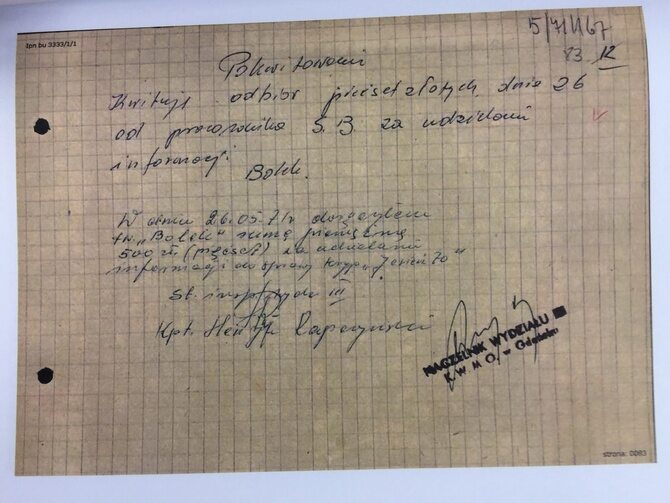 ipn bu 3333/1/1
5/71/167
83 12
Pokwitowani
Kwituję odbiór pięćset złotych dnia 26
od pracownika S.B. za udzielani
informacji.
Bolek.
W dniu 26.05.71r doręczyłem
tw. „Bolek" sumę pieniężną
500 zł (pięćset) za udzielanie
informacji do sprawy krypt. „Jesień 70"
St. insp. Wydz. III
Kpt. Rapczyński
NACZELNIK WYDZIAŁU III
K.W M O. w Gdańsku
strona: 0083